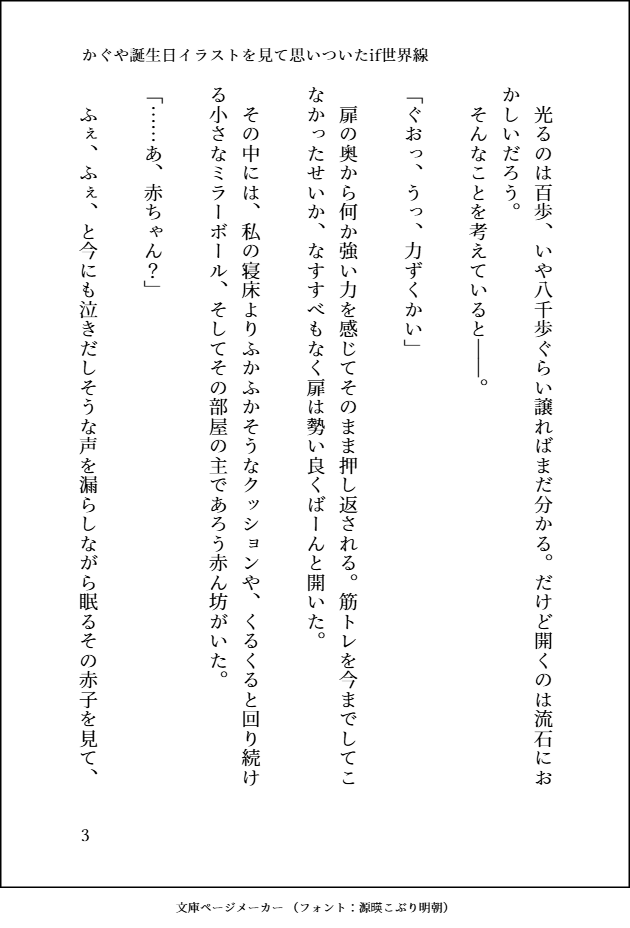 かぐや誕生日イラストを見て思いついたif世界線
光るのは百歩、いや八千歩ぐらい譲ればまだ分かる。だけど開くのは流石にお
かしいだろう。
そんなことを考えていると――。
「ぐおっ、うっ、力ずくかい」
扉の奥から何か強い力を感じてそのまま押し返される。筋トレを今までしてこ
なかったせいか、なすすべもなく扉は勢い良くばーんと開いた。
その中には、私の寝床よりふかふかそうなクッションや、くるくると回り続け
る小さなミラーボール、そしてその部屋の主であろう赤ん坊がいた。
「……あ、赤ちゃん？」
ふぇ、ふぇ、と今にも泣きだしそうな声を漏らしながら眠るその赤子を見て、
3
文庫ページメーカー（フォント：源暎こぶり明朝）